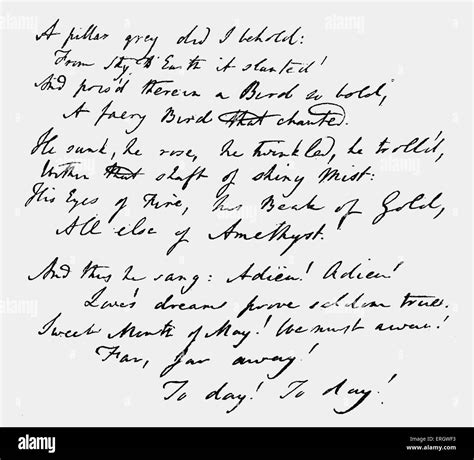 alamy
A pillar grey did I behold:
From Sky to Earth it slanted!
And pois'd therein a Bird so bold,
A faery Bird that chanted.
He sunk, he rose, he twinkled, he troll'd,
Within that shaft of shiny Mist:
His Eyes of Fire, his Beak of Gold,
All else of Amethyst!
And thus he sang: Adieu! Adieu!
Love's dreams prove seldom true.
Sweet Month of May! We must away!
Far, far away!
To day! To day!
alamy
Image ID: ERGWF3
www.alamy.com